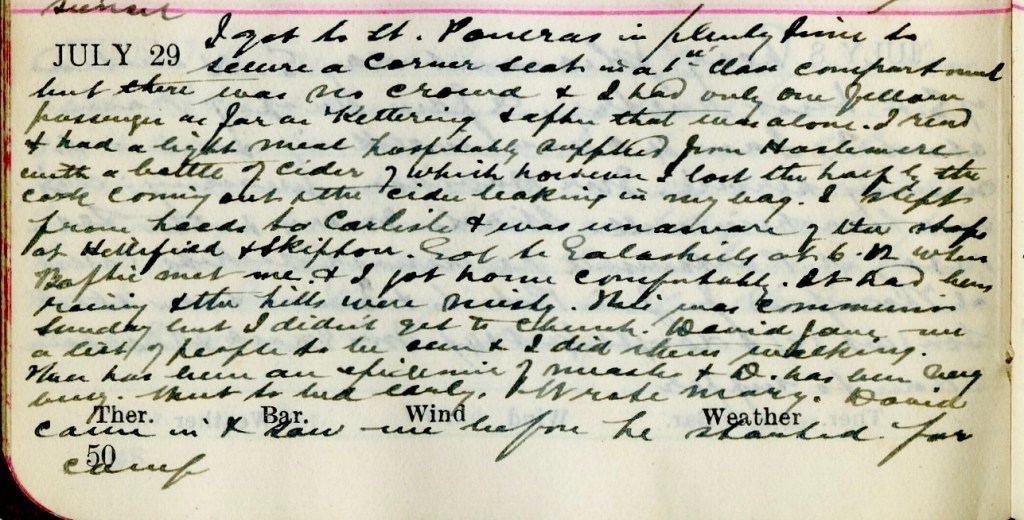 sunset
JULY 29 I got to St. Pancras in plenty time to
secure a corner seat in a 1st class compartment
but there was no crowd & I had only one fellow
passenger as far as Kettering & after that was alone. I read
& had a light meal hospitably supplied from Haslemere
with a bottle of cider of which however I lost the half by the
cork coming out & the cider leaking in my bag. I slept
from Leeds to Carlisle & was unaware of the stops
at Hellifield & Skipton. Got to Galashiels at 6.12 when
met me & I got home comfortably. It had been
raining & the hills were misty. This was Communion
Sunday but I didn't get to church. David gave me
a list of people to be seen & I did them walking.
There has been an epidemic of measles & D. has been very
busy. Went to bed early. Wrote Mary. David
Ther. Bar. Wind Weather
came in & saw me before he started for
50
camp